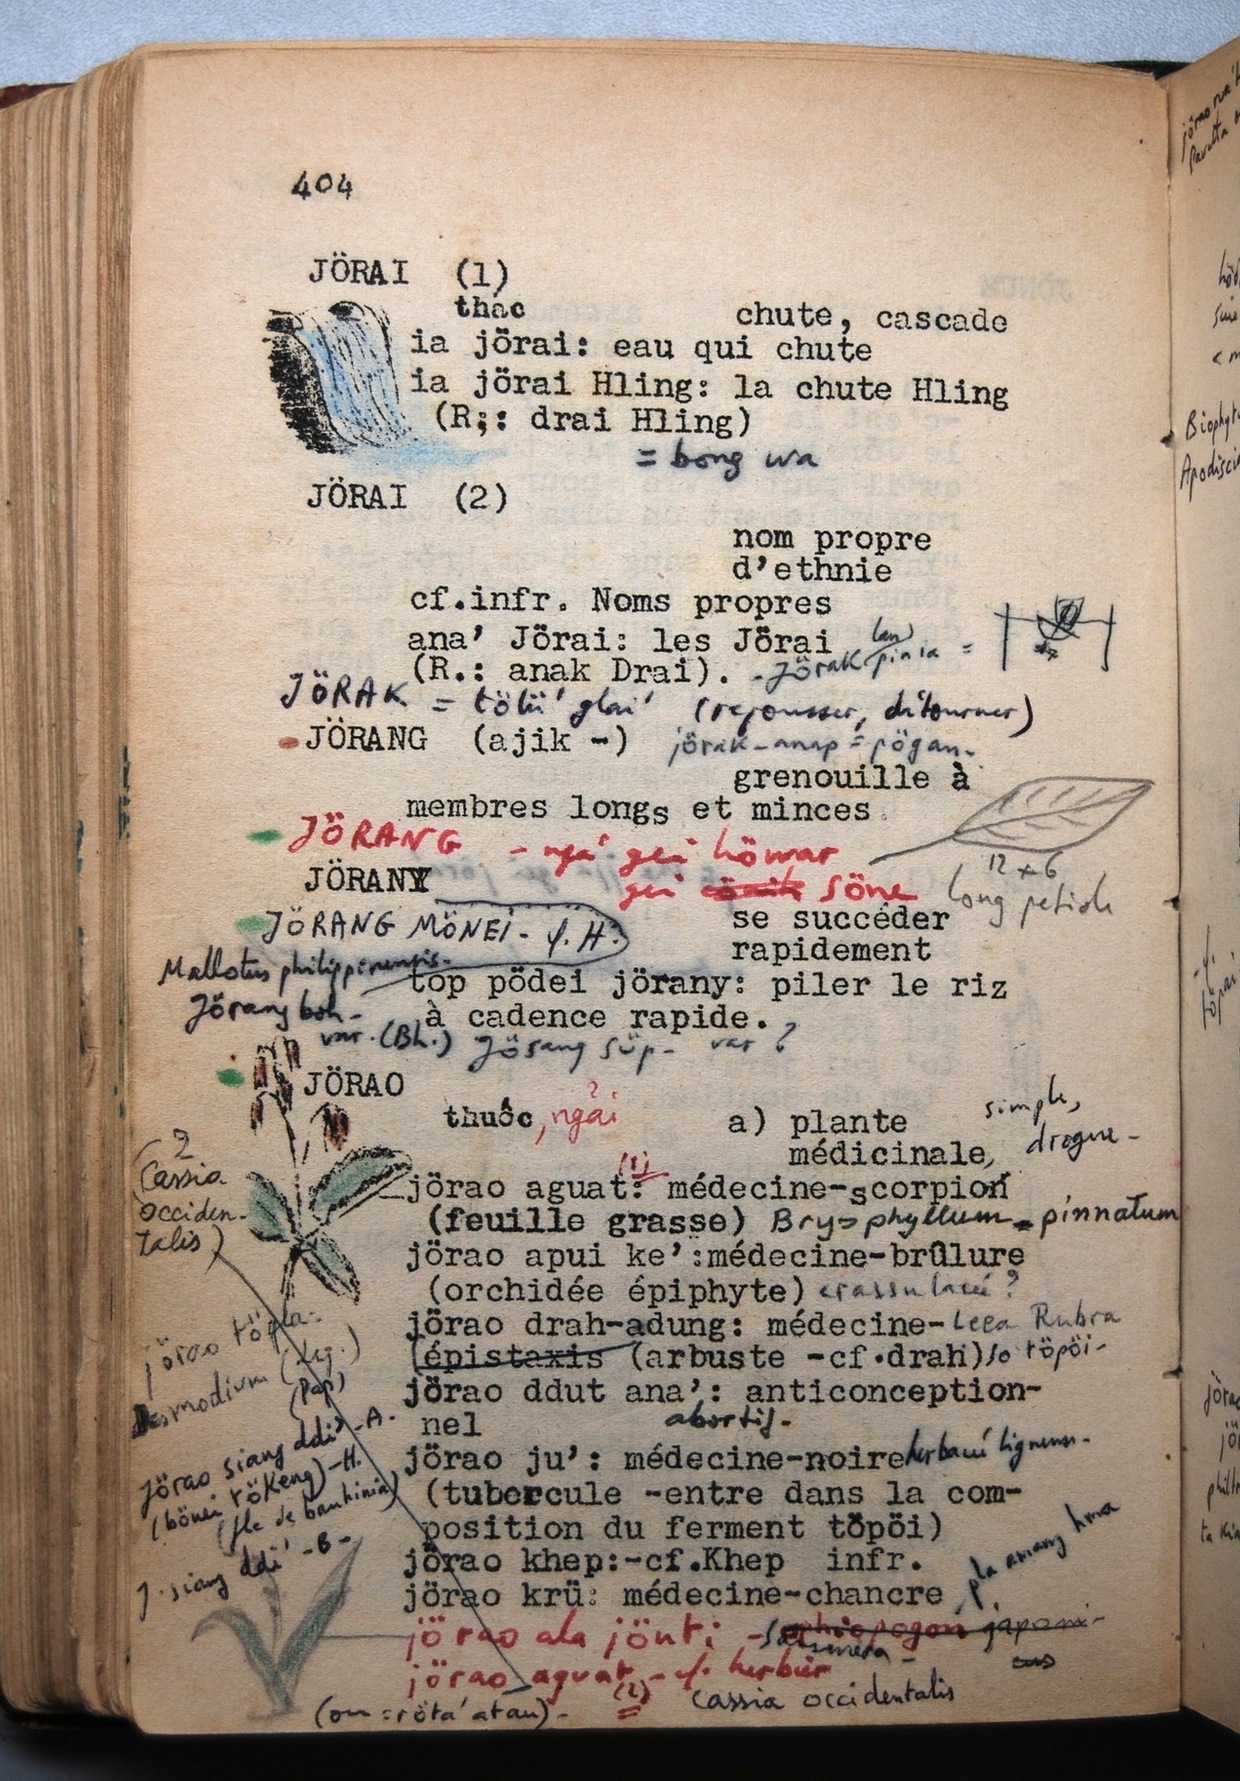 404
JÖRAI (1)
thác chute, cascade
ia jörai: eau qui chute
ia jörai Hling: la chute Hling
(R;: drai Hling)
= bong wa
JÖRAI (2)
nom propre
d'ethnie
cf.infr. Noms propres
ana' Jörai: les Jörai
(R.: anak Drai). - jörak pinia =
JÖRAK = tölü' glai' (repousser, détourner)
JÖRANG (ajik -) jörak-anap = pögan.
grenouille à
membres longs et minces.
JÖRANG - ngá gei höwar
JÖRANY gei söne
12 x 6
long petiole
JÖRANG MÖNEI - cf. H.
se succéder
rapidement
Mallotus philippinensis.
top pödei jörany: piler le riz
Jörang boh -
à cadence rapide.
var. (Bh.) Jörang süp - var ?
JÖRAO
thuôc, ngải ? a) plante simple,
médicinale, drogue -
(? Cassia
occiden-
talis)
jörao aguat: (1) médecine-scorpion
(feuille grasse) Bryophyllum pinnatum
jörao apui ke':médecine-brûlure
(orchidée épiphyte) crassulacée ?
jörao drah-adung: médecine- Leea Rubra
épistaxis (arbuste -cf.drah) so töpöi-
jörao ddut ana': anticonception-
nel abortif -
jörao ju': médecine-noire herbacée
(tubercule -entre dans la com-
position du ferment töpöi)
jörao khep:-cf.Khep infr.
jörao krü: médecine-chancre
pla amang hma
jörao
Desmodium (Leg.)
(Pap)
jörao siang ddi' - A.
(bönei rökeng) - H.
(fle de bauhinia)
J. siang ddi' - B -
jörao ala jönti - ophiopogon japoni-
cus
jörao aguat (2) - cf. herbier
Cassia occidentalis
(ou = röta' atau) -